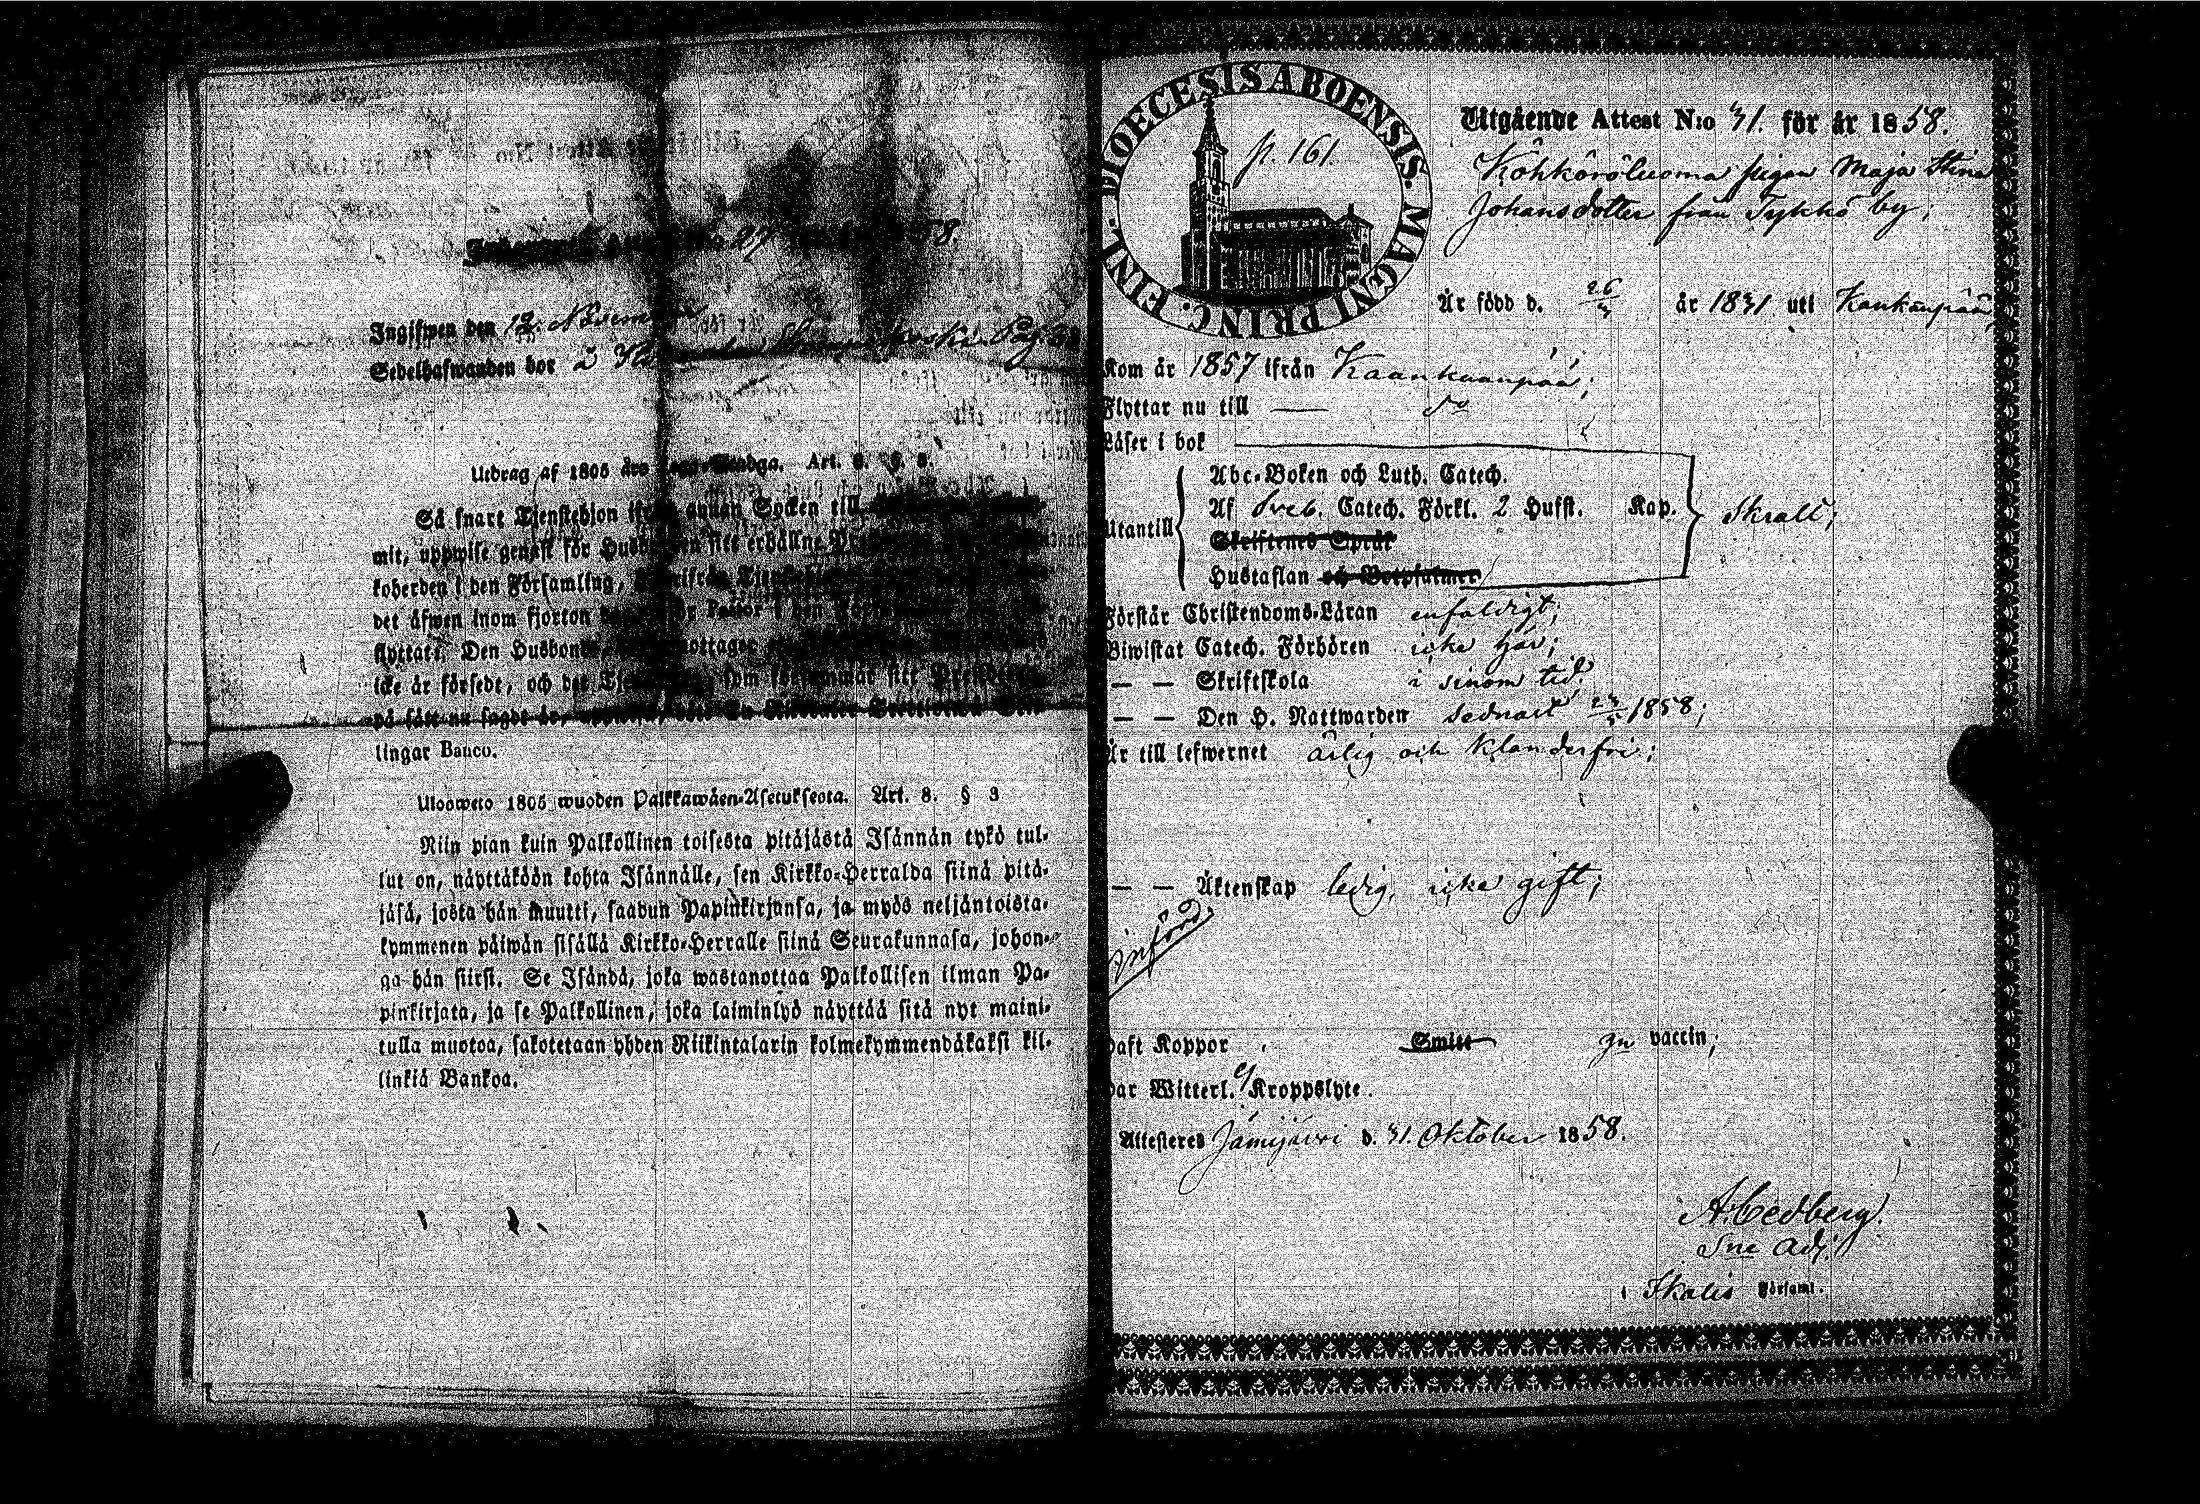 27 58.
Ingifwen den 12. November
Sedelhafwanden bor
Utdrag af 1805 års Lego-Stadga. Art. 8. §. 3.
Så snart Tjenstehjon ifrån annan Socken till
mit, uppwise genast för Husbonden sitt erhållne
koherden i den Församling,
det äfwen inom fjorton
flyttat. Den Husbonde, mottager
icke är försedt, och det som försummar sitt
på sätt nu sagdt är,
lingar Banco.
Ulosweto 1805 wuoden Palkkawäen-Asetuksesta. Art. 8. § 3
Niin pian kuin Palkollinen toisesta pitäjästä Isännän tykö tul-
lut on, näyttäköön kohta Isännälle, sen Kirkko-Herralda siinä pitä-
jäsä, josta hän muutti, saadun Papinkirjansa, ja myös neljäntoista-
kymmenen päiwän sisällä Kirkko-Herralle siinä Seurakunnasa, johon-
ga hän siirsi. Se Isändä, joka wastanottaa Palkollisen ilman Pa-
pinkirjata, ja se Palkollinen, joka laiminlyö näyttää sitä nyt maini-
tulla muotoa, sakotetaan yhden Riikintalarin kolmekymmendäkaksi kil-
linkiä Bankoa.
FINL. DIOECESIS ABOENSIS. MAGNI PRINC.
p. 161.
Utgående Attest N:o 31. för år 1858.
Köhköröluoma pigan Maja Stina
Johansdotter från Tykkö by;
Är född d. 26/3 år 1831 uti Kankanpää,
Kom år 1857 ifrån Kaankaanpää;
Flyttar nu till — do
Läser i bok
Abc-Boken och Luth. Catech.
Utantill Af Sveb. Catech. Förkl. 2 Hufst. Kap. Skralt;
Skriftenes Språk
Hustaflan och Botpsalmer
Förstår Christendoms-Läran enfaldigt;
Biwistat Catech. Förhören icke här;
— — Skriftskola i sinom tid
— — Den H. Nattwarden sednast 23/5 1858;
Är till lefwernet ärlig och klanderfri;
— — Äktenskap ledig, icke gift;
införd
Haft Koppor Smitt gn vaccin;
Har Witterl. ej Kroppslyte.
Attesteras Jämijärvi d. 31. Oktober 1858.
A. Cedberg.
Sne Adj.
i Ikalis Församl.